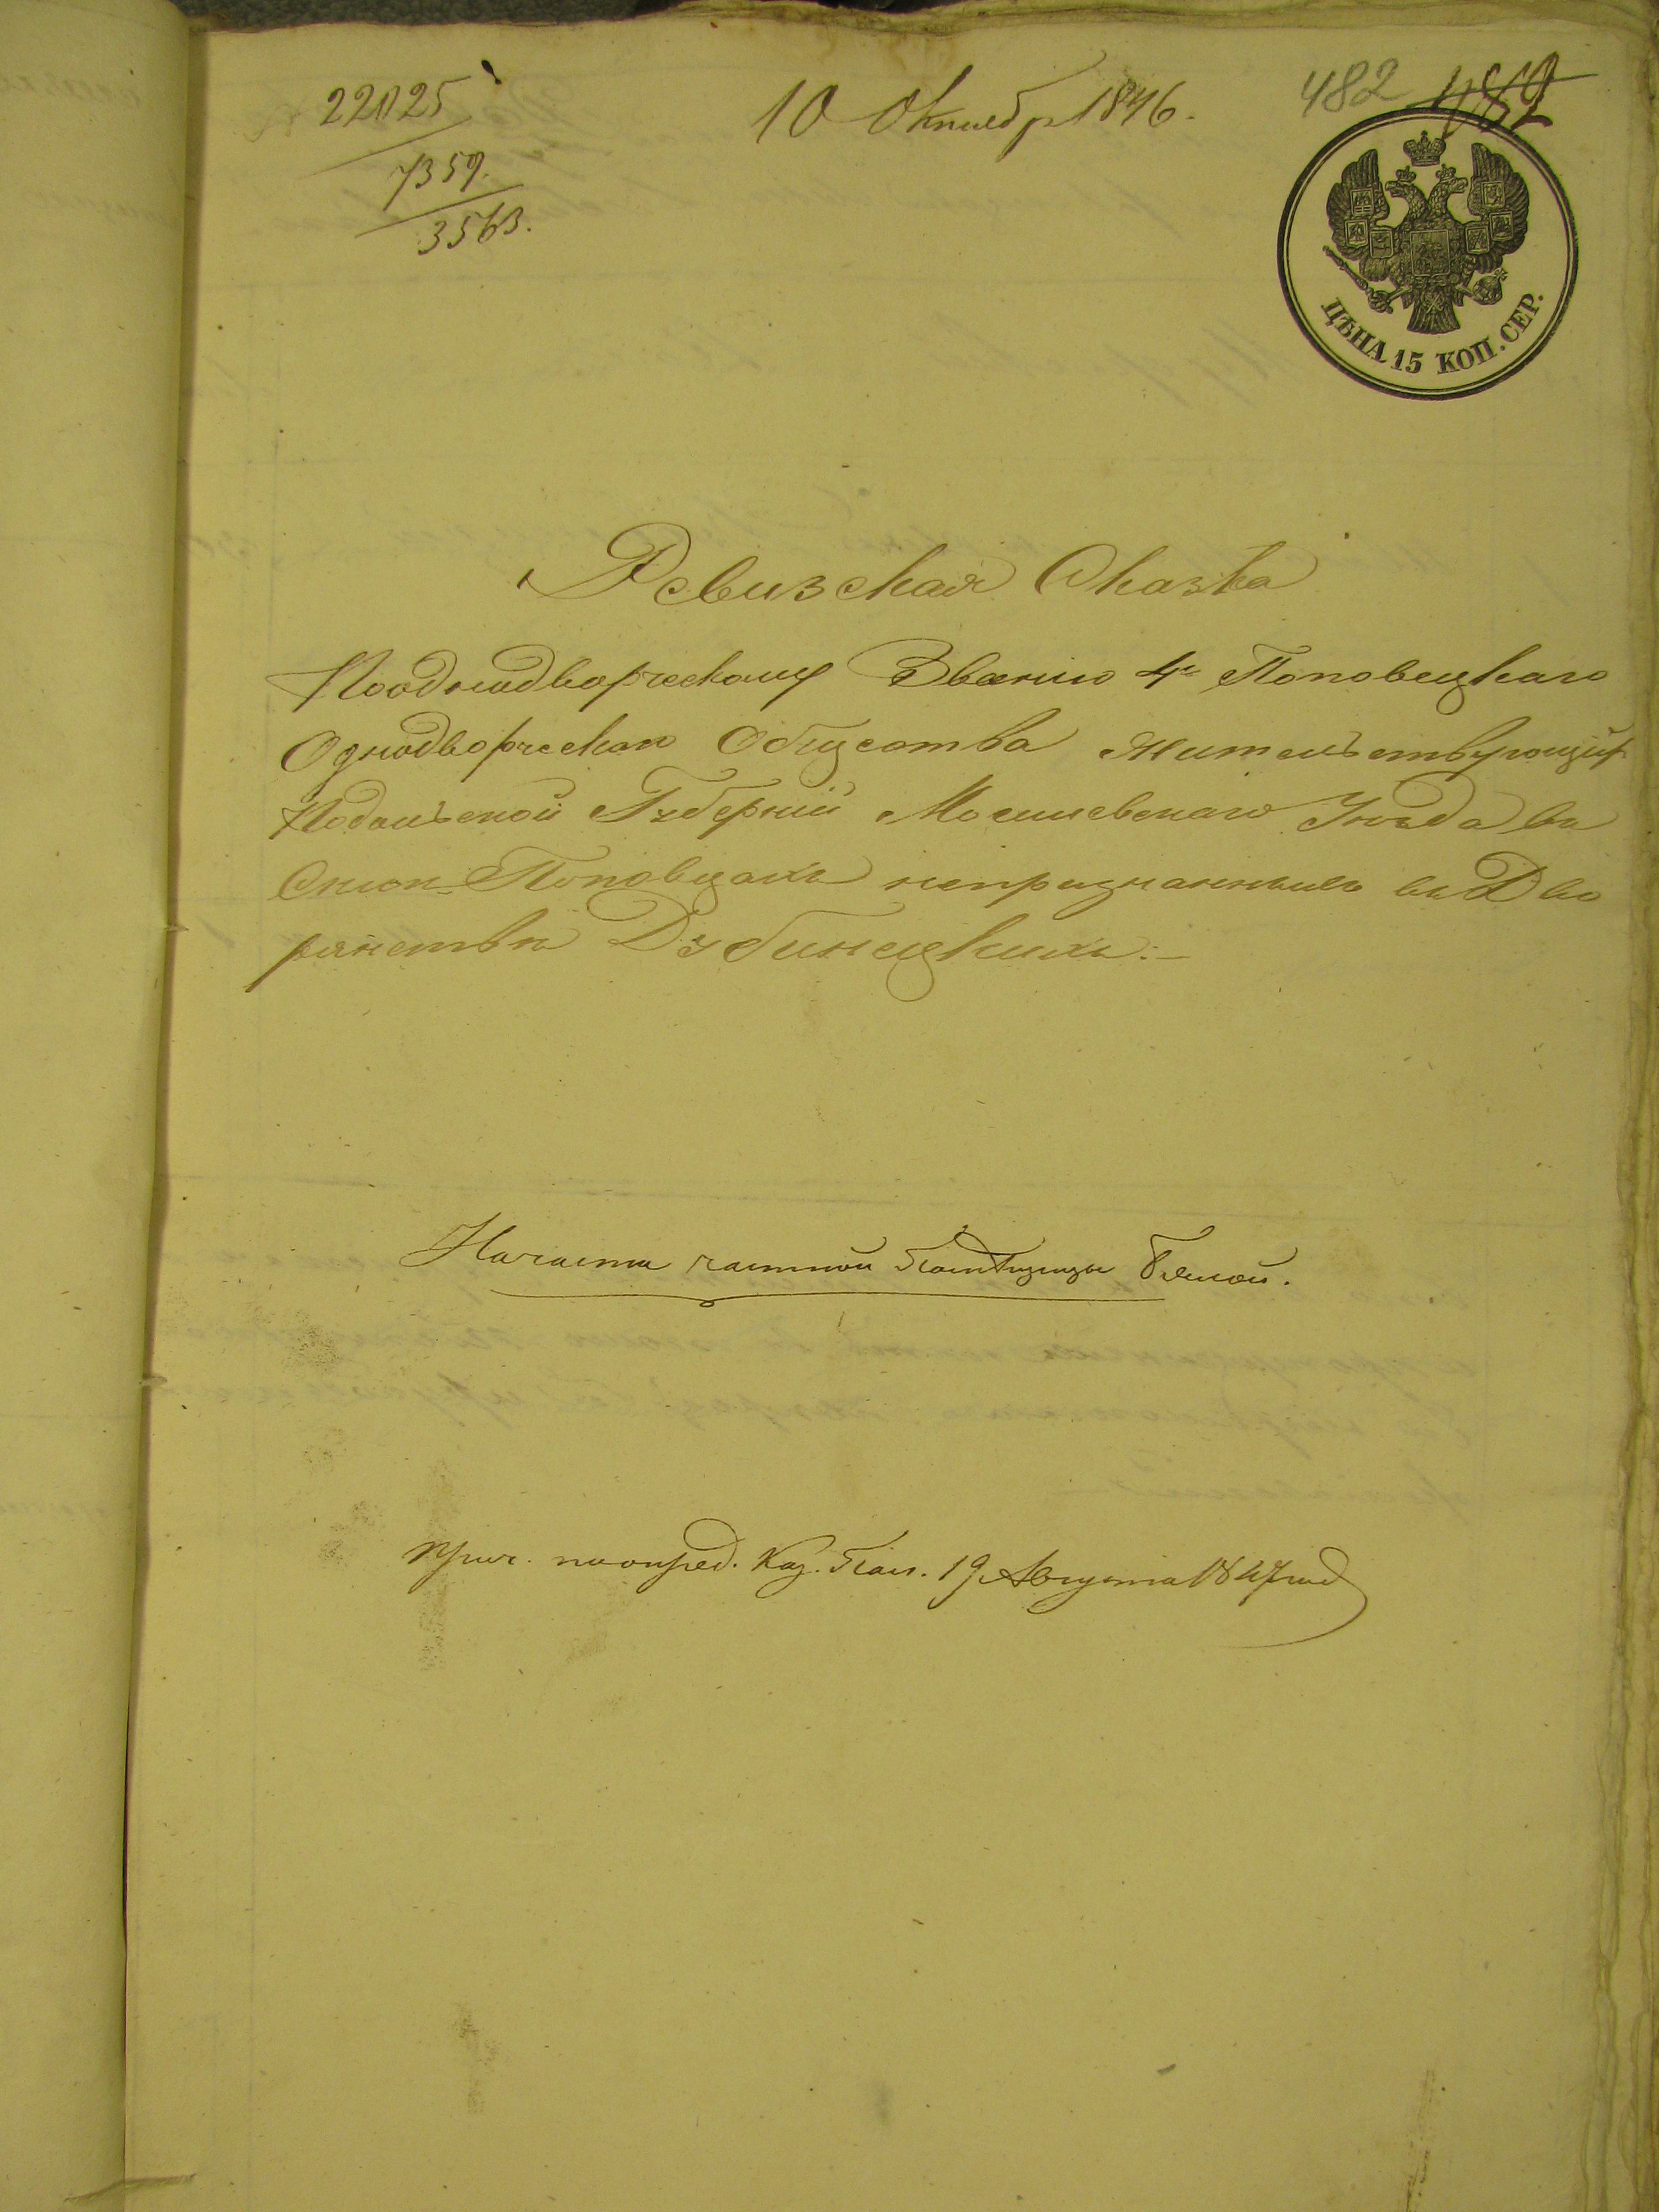 22025
7359.
3563.
10 Октября 1846.
482 482
ЦѢНА 15 КОП. СЕР.
Ревизская Сказка
Пооднодворческому Званию 4го Поповецкаго
Однодворческаго Общества жительствующих
Подольской Губерніи Могилевскаго Уѣзда въ
Поповцахъ непризнанныхъ въ Дво
рянствѣ Дубинецкихъ:—
частной
прич. по опред. Каз. Пал. 19 Августа 1847 года